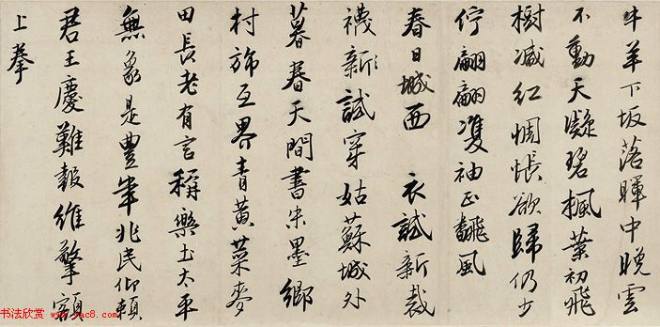 牛羊下坂落暉中晚雲
不動天凝碧楓葉初飛
樹減紅惆悵欲歸仍少
佇翩翩雙袖正飜風
春日城西 衣試新裁
襪新試穿姑蘇城外
暮春天間書朱墨鄉
村旆互界青黃菜麥
田長老有言稱樂土太平
無象是豐年兆民仰賴
君王慶難報維擎額
上拳
书法欣赏